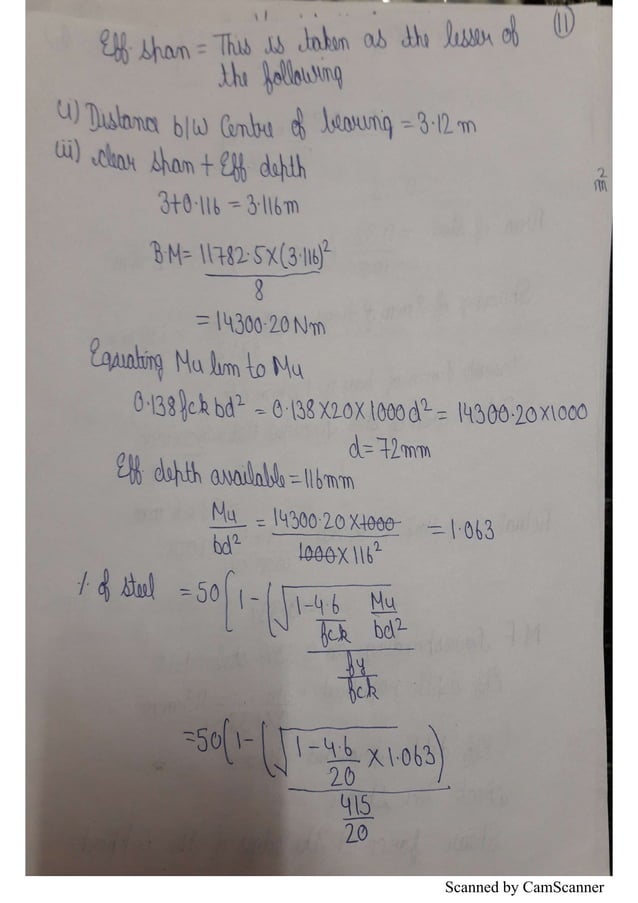 11
Eff. span = This is taken as the lesser of
the following
(i) Distance b/w Centre of bearing = 3.12 m
(ii) clear span + Eff depth
3+0.116 = 3.116m
m²
B.M = 11782.5X(3.116)²
8
= 14300.20Nm
Equating Mu lim to Mu
0.138fck bd² = 0.138X20X1000d² = 14300.20X1000
d=72mm
Eff. depth available = 116mm
Mu/bd² = 14300.20 X1000/1000X116² = 1.063
% of steel = 50[1-(√1-4.6/fck Mu/bd²
fy/fck
=50(1-(√1-4.6/20 X1.063)
415/20
Scanned by CamScanner